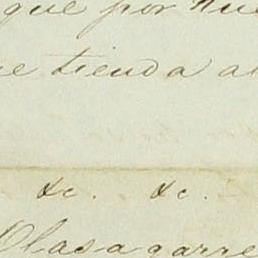 que por nue
e tienda al
&c. &c.
Olasagarre